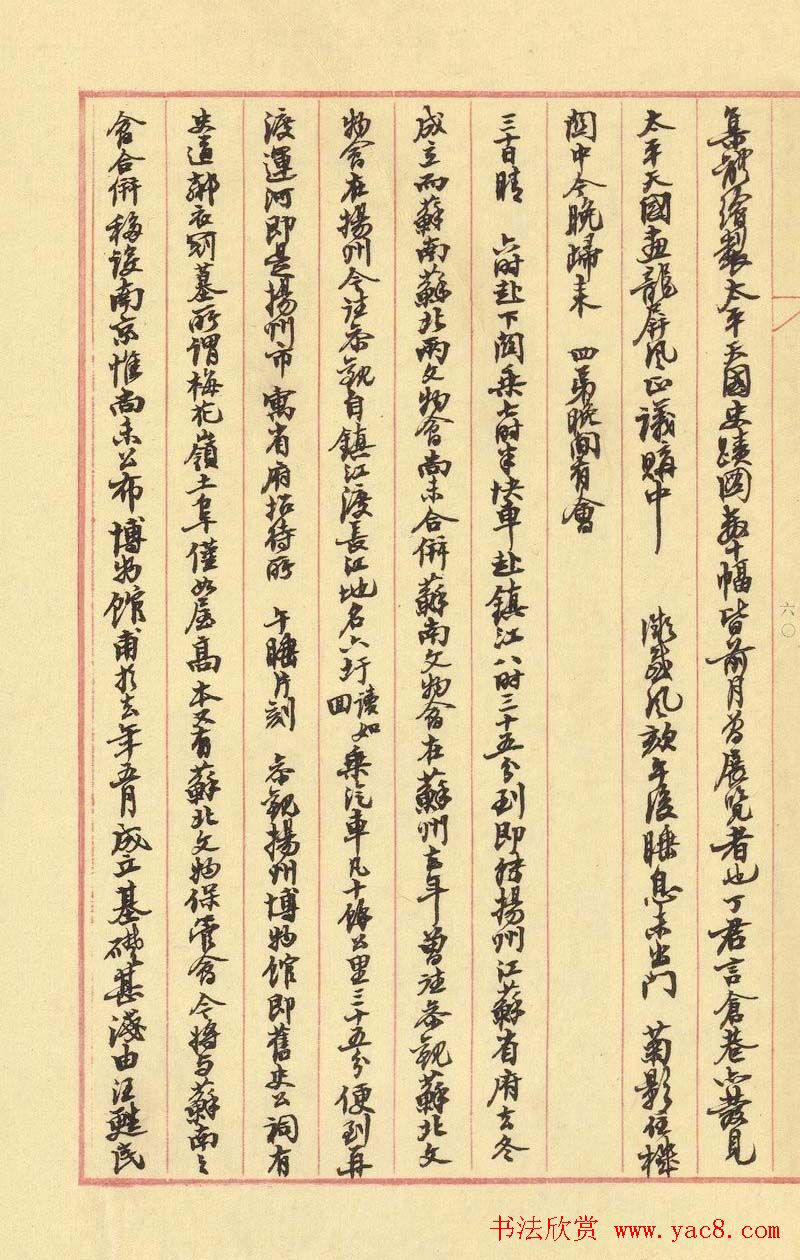 集體繪製太平天國史蹟圖數十幅皆前月為展覽者也丁君言倉巷亦發見
太平天國畫龍屏風正議購中 微感風 午後睡息未出門 菊影伍
閣中今晚歸來 四弟晚間有會
三十日晴 六時赴下關乘七時半快車赴鎮江八時三十五分到即轉揚州江蘇省府去冬
成立而蘇南蘇北兩文物會尚未合併蘇南文物會在蘇州去年曾往參觀蘇北文
物會在揚州今往參觀自鎮江渡長江地名六圩讀如圍乘汽車凡十餘公里三十五分便到再
渡運河即是揚州市 寓省府招待所 午睡片刻 參觀揚州博物館即舊史公祠有
史道鄰衣冠墓所謂梅花嶺土阜僅如屋高本又有蘇北文物保管會今將與蘇南之
會合併移設南京惟尚未公布博物館甫於去年五月成立基礎甚淺由江
六〇
书法欣赏 www.yac8.com